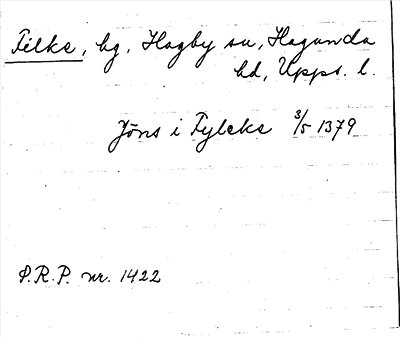 Filke, by, Hagby sn, Hagunda
hd, Upps. l.
Jöns i Fylcke 3/5 1379
P.R.P. nr. 1422